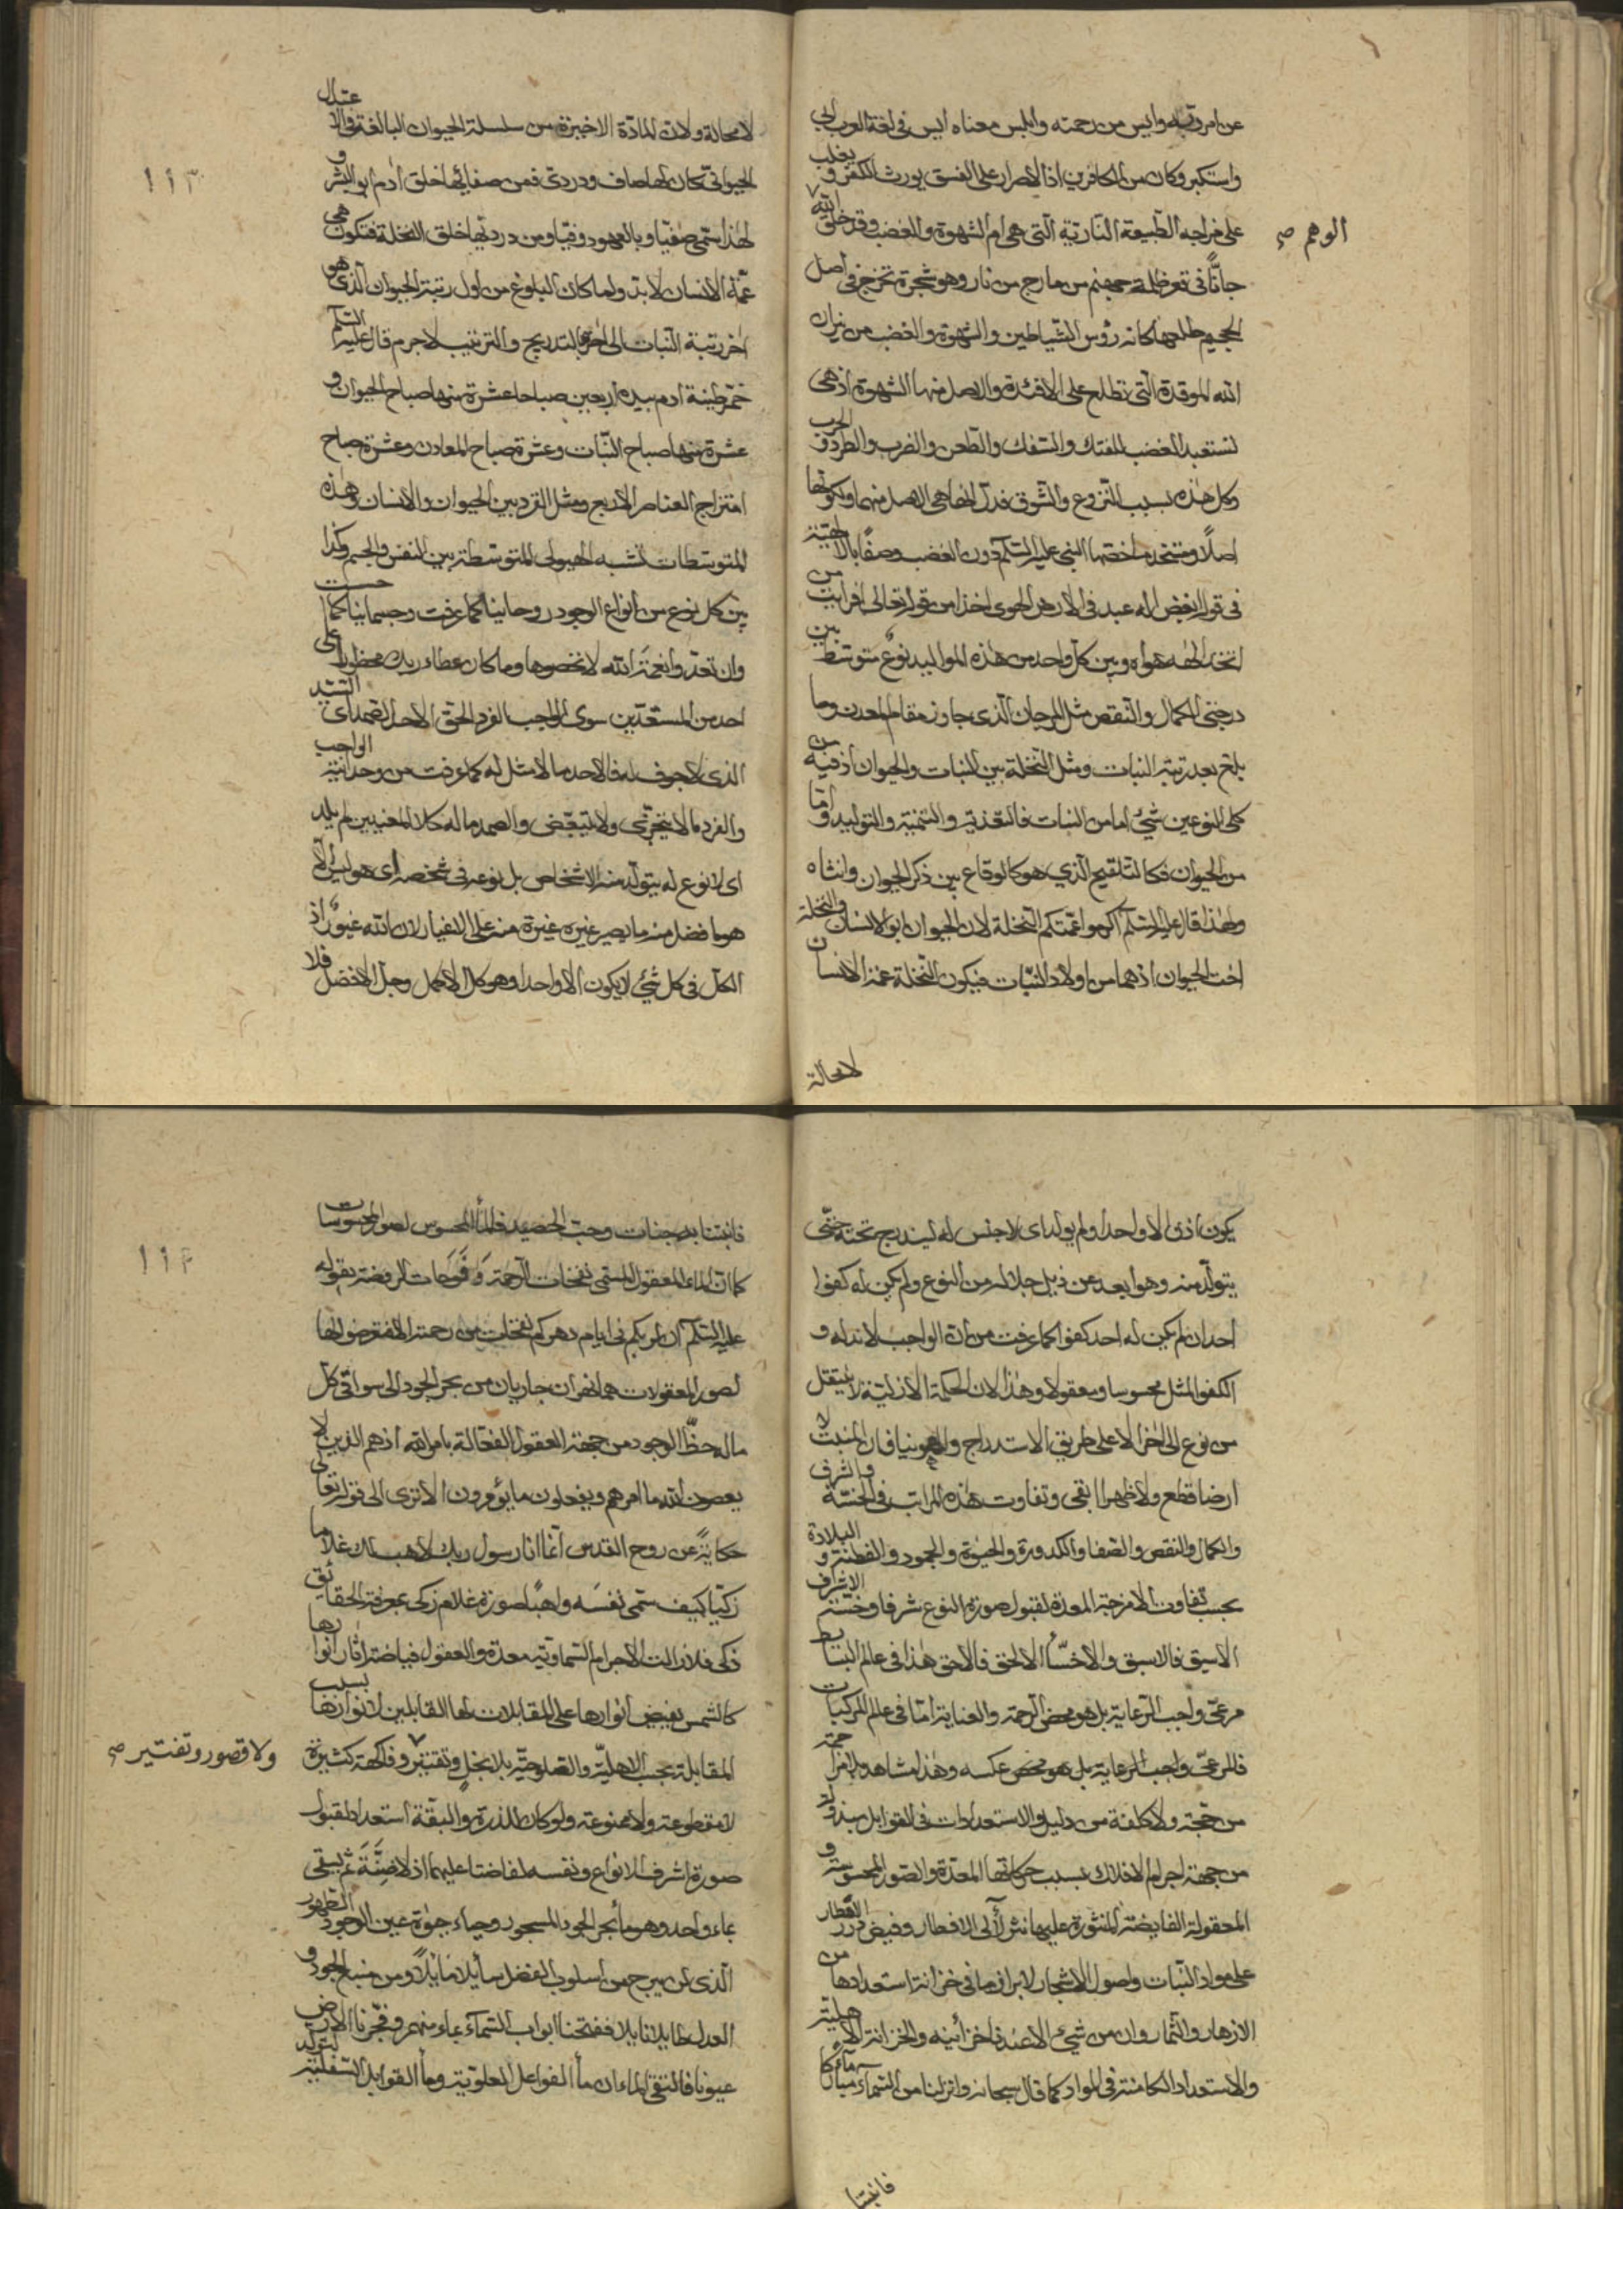 عن امر ربه وايس من رحمته وابلس معناه ايس فى لغة العرب ابى
واستكبر وكان من الكافرين اذ الاصرار على الفسق يورث الكفر ويغلب
على مزاجه الطبيعة النارية التى هى ام الشهوة والغضب وقد خلق الله
الوهم صح
جانا فى قعر ظلمة جهنم من مارج من نار وهو شجرة تخرج فى اصل
الجحيم طلعها كانه رؤس الشياطين والشهوة والغضب من نيران
الله الموقدة التى تطلع على الافئدة والاصل منها الشهوة اذ هى
تستعبد الغضب للفتك والسفك والطعن والضرب والطرد والحرب
وكل هذه بسبب النزوع والشوق فدل انها هى الاصل منهما ولكونها
اصلا ومتخدما خصها النبى عليه السلم دون الغضب وصفا بالاحقية
فى قوله ابغض اله عبد فى الارض الهوى اخذا من قوله تعالى افرايت من
اتخذ الهه هواه وبين كل واحد من هذه المواليد نوع متوسط بين
درجتى الكمال والنقص مثل المرجان الذى جاوز مقام المعدن وما
بلغ بعد رتبة النبات ومثل النخلة بين النبات والحيوان اذ فيه من
كلى النوعين شئ اما من النبات فالتغذية والتنمية والتوليد واما
من الحيوان فكالتلقيح الذي هو كالوقاع بين ذكر الحيوان وانثاه
ولهذا قال عليه السلم اكرموا عمتكم النخلة لان الحيوان ابو الانسان والنخلة
اخت الحيوان اذ هما من اولاد النبات فيكون النخلة عمة الانسان
لا محالة
١١٣
لا محالة ولان المادة الاخيرة من سلسلة الحيوان البالغة فى الاعتدال
الحيوانى كان لها صاف ودردى فمن صفائها خلق ادم ابو البشر و
لهذا سمى صفيا وبالعهود وفيا ومن درديها خلق النخلة فتكون هى
عمة الانسان لا بد ولما كان البلوغ من اول رتبة الحيوان الذى هو
اخر رتبة النبات الى اخره بالتدريج والترتيب لا جرم قال عليه السلم
خمر طينة ادم بيده اربعين صباحا عشرة منها صباح الحيوان و
عشرة منها صباح النبات وعشرة صباح المعادن وعشرة صباح
امتزاج العناصر الاربع ومثل القرد بين الحيوان والانسان وهذه
المتوسطات تشبه الهيولى المتوسطة بين النفس والجسم وكذا
بين كل نوع من انواع الوجود روحانيا كما عرفت وجسمانيا كما حسست
وان تعدوا نعمة الله لا تحصوها وما كان عطاء ربك محظورا على
احد من المستعدين سوى الواجب الفرد الحق الاحد الصمد اى السيد
الذى لا جوف له فالاحد ما لا مثل له كما عرفت من وحدانية الواجب
والفرد ما لا يتجزى ولا يتبعض والصمد ما له كلا المعنيين لم يلد
اى لا نوع له يتولد منه الاشخاص بل نوعه فى شخصه اى هو ليس الا
هو ما فضل منه ما يصير غيره غيرة منه على الاغيار لان الله غيور اذ
الكل فى كل شئ لا يكون الا واحدا وهو كل الاكمل وجل الافضل فلا
يكون اذن الا واحدا ولم يولد اى لا جنس له ليندرج تحته حتى
يتولد منه وهو ابعد عن ذيل جلاله من النوع ولم يكن له كفوا
احد ان لم يكن له احد كفوا كما عرفت من ان الواجب لا ند له و
الكفو المثل محسوسا ومعقولا وهذا لان الحكمة الازلية لا ينتقل
من نوع الى اخر الا على طريق الاستدراج والهوينا فان المنبت لا
ارضا قطع ولا ظهرا ابقى وتفاوت هذه المراتب فى الخسة والشرف
والكمال والنقص والصفا والكدورة والحيوة والجمود والفطنة والبلادة
بحسب تفاوت الامزجة المعدة لقبول صورة النوع شرفا وخسة الاشراف
الاسبق فالاسبق والاخس الالحق فالاحق هذا فى عالم البسايط
مرعى واجب الرعاية بل هو محض الرحمة والعناية اما فى عالم المركبات
فالمرعى واجب الرعاية بل هو محض عكسه وهذا مشاهد بلا مزاحمة
من حجة ولا كلفة من دليل والاستعدادات فى القوابل يبذولد
من جهة اجرام الافلاك بسبب حركاتها المعدة والصور المحسوسة و
المعقولة الفايضة المنثورة عليها نثر لآلى الافطار وفيض درر القطار
على مواد النبات واصول الاشجار لابراز ما فى خزانة استعدادها من
الازهار والثمار وان من شئ الا عندنا خزائنه والخزانة الاهلية
والاستعداد الكامنة فى المواد كما قال سبحانه وانزلنا من السماء ماء مباركا
فانبتنا
١١٤
فانبتنا به جنات وحب الحصيد فالماء المحسوس لصور المحسوسات
كما ان الماء المعقول المسمى نفحات الرحمة وفوحات الروضة بقوله
عليه السلم ان لربكم فى ايام دهركم نفحات من رحمته الا فتعرضوا لها
لصور المعقولات هما نهران جاريان من بحر الجود الى سواقى كل
ما له حظ الوجود من جهة العقول الفعالة بامر الله اذ هم الذين لا
يعصون الله ما امرهم ويفعلون ما يؤمرون الا ترى الى قوله تعالى
حكاية عن روح القدس انما انا رسول ربك لاهب لك غلاما
زكيا كيف سمى نفسه واهبا لصورة غلام زكى بمعرفة الحقائق
ذكى فلا زالت الاجرام السماوية معدة والعقول فياضة اثار انوارها
كالشمس يفيض انوارها على المقابلات لها القابلين لانوارها بسبب
المقابلة بحسب الاهلية والصلوحية بلا بخل وتقتير وفاكهة كثيرة
ولا قصور وتفتير صح
لا مقطوعة ولا ممنوعة ولو كان للذرة والبقة استعداد لقبول
صورة اشرف الانواع ونفسه لفاضتا عليهما اذ لا ضنة ثم يسقى
بماء واحد وهو ماء بحر الجود المسجور وحياء حيوة عين الوجود الظهور
الذى لن يبرح من اسلوب الفضل سايلا نايلا ومن منبع الجود و
العدل طايلا نايلا ففتحنا ابواب السماء بماء منهمر وفجرنا الارض
عيونا فالتقى الماءان ماء الفواعل العلوية وماء القوابل السفلية لتوليد